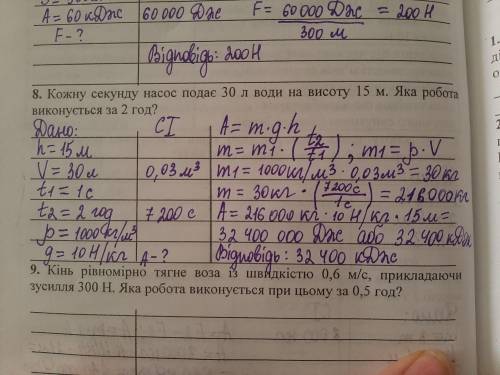 A = 60 кДж 60 000 Дж F = 60 000 Дж / 300 м = 200 Н
F - ?
Відповідь: 200Н
8. Кожну секунду насос подає 30 л води на висоту 15 м. Яка робота
виконується за 2 год?
Дано: СІ A = m·g·h
h = 15 м m = m1 · (t2/t1) ; m1 = ρ · V
V = 30 л 0,03 м³ m1 = 1000 кг/м³ · 0,03 м³ = 30 кг
t1 = 1 с m = 30 кг · (7200с/1с) = 216000 кг
t2 = 2 год 7 200 с A = 216 000 кг · 10 Н/кг · 15 м =
ρ = 1000 кг/м³ 32 400 000 Дж або 32 400 кДж
g = 10 Н/кг A - ? Відповідь: 32 400 кДж
9. Кінь рівномірно тягне воза із швидкістю 0,6 м/с, прикладаючи
зусилля 300 Н. Яка робота виконується при цьому за 0,5 год?